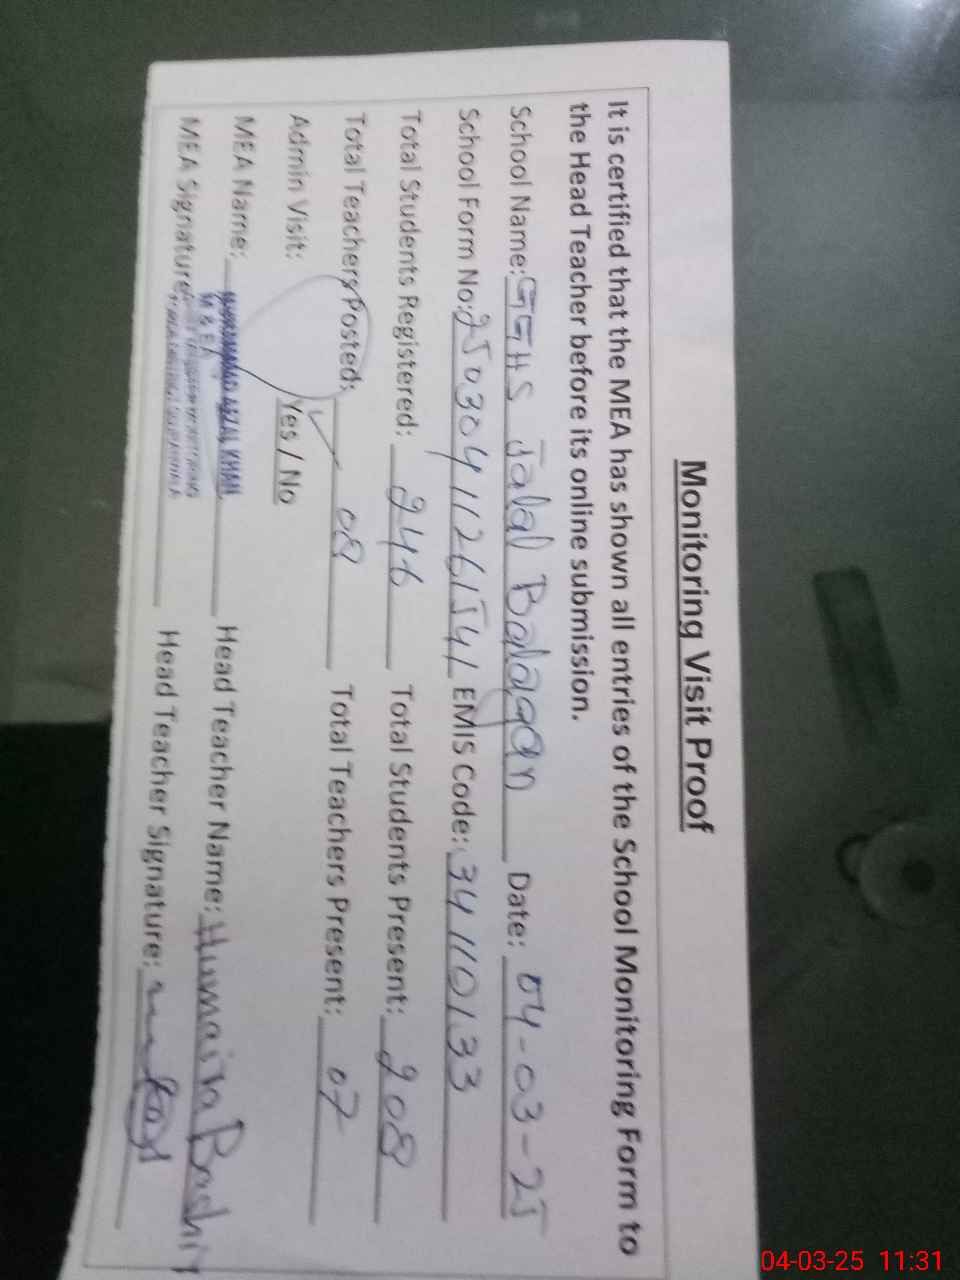 Monitoring Visit Proof
It is certified that the MEA has shown all entries of the School Monitoring Form to
the Head Teacher before its online submission.
School Name: GGHS Jalal Balagan Date: 04-03-25
School Form No: 25030411261541 EMIS Code: 34110133
Total Students Registered: 246 Total Students Present: 208
Total Teachers Posted: 08 Total Teachers Present: 07
Admin Visit: Yes / No
MEA Name: MUHAMMAD AFZAL KHAN Head Teacher Name: Humaira Bashir
M & EA
MEA Signature: Head Teacher Signature:
04-03-25 11:31